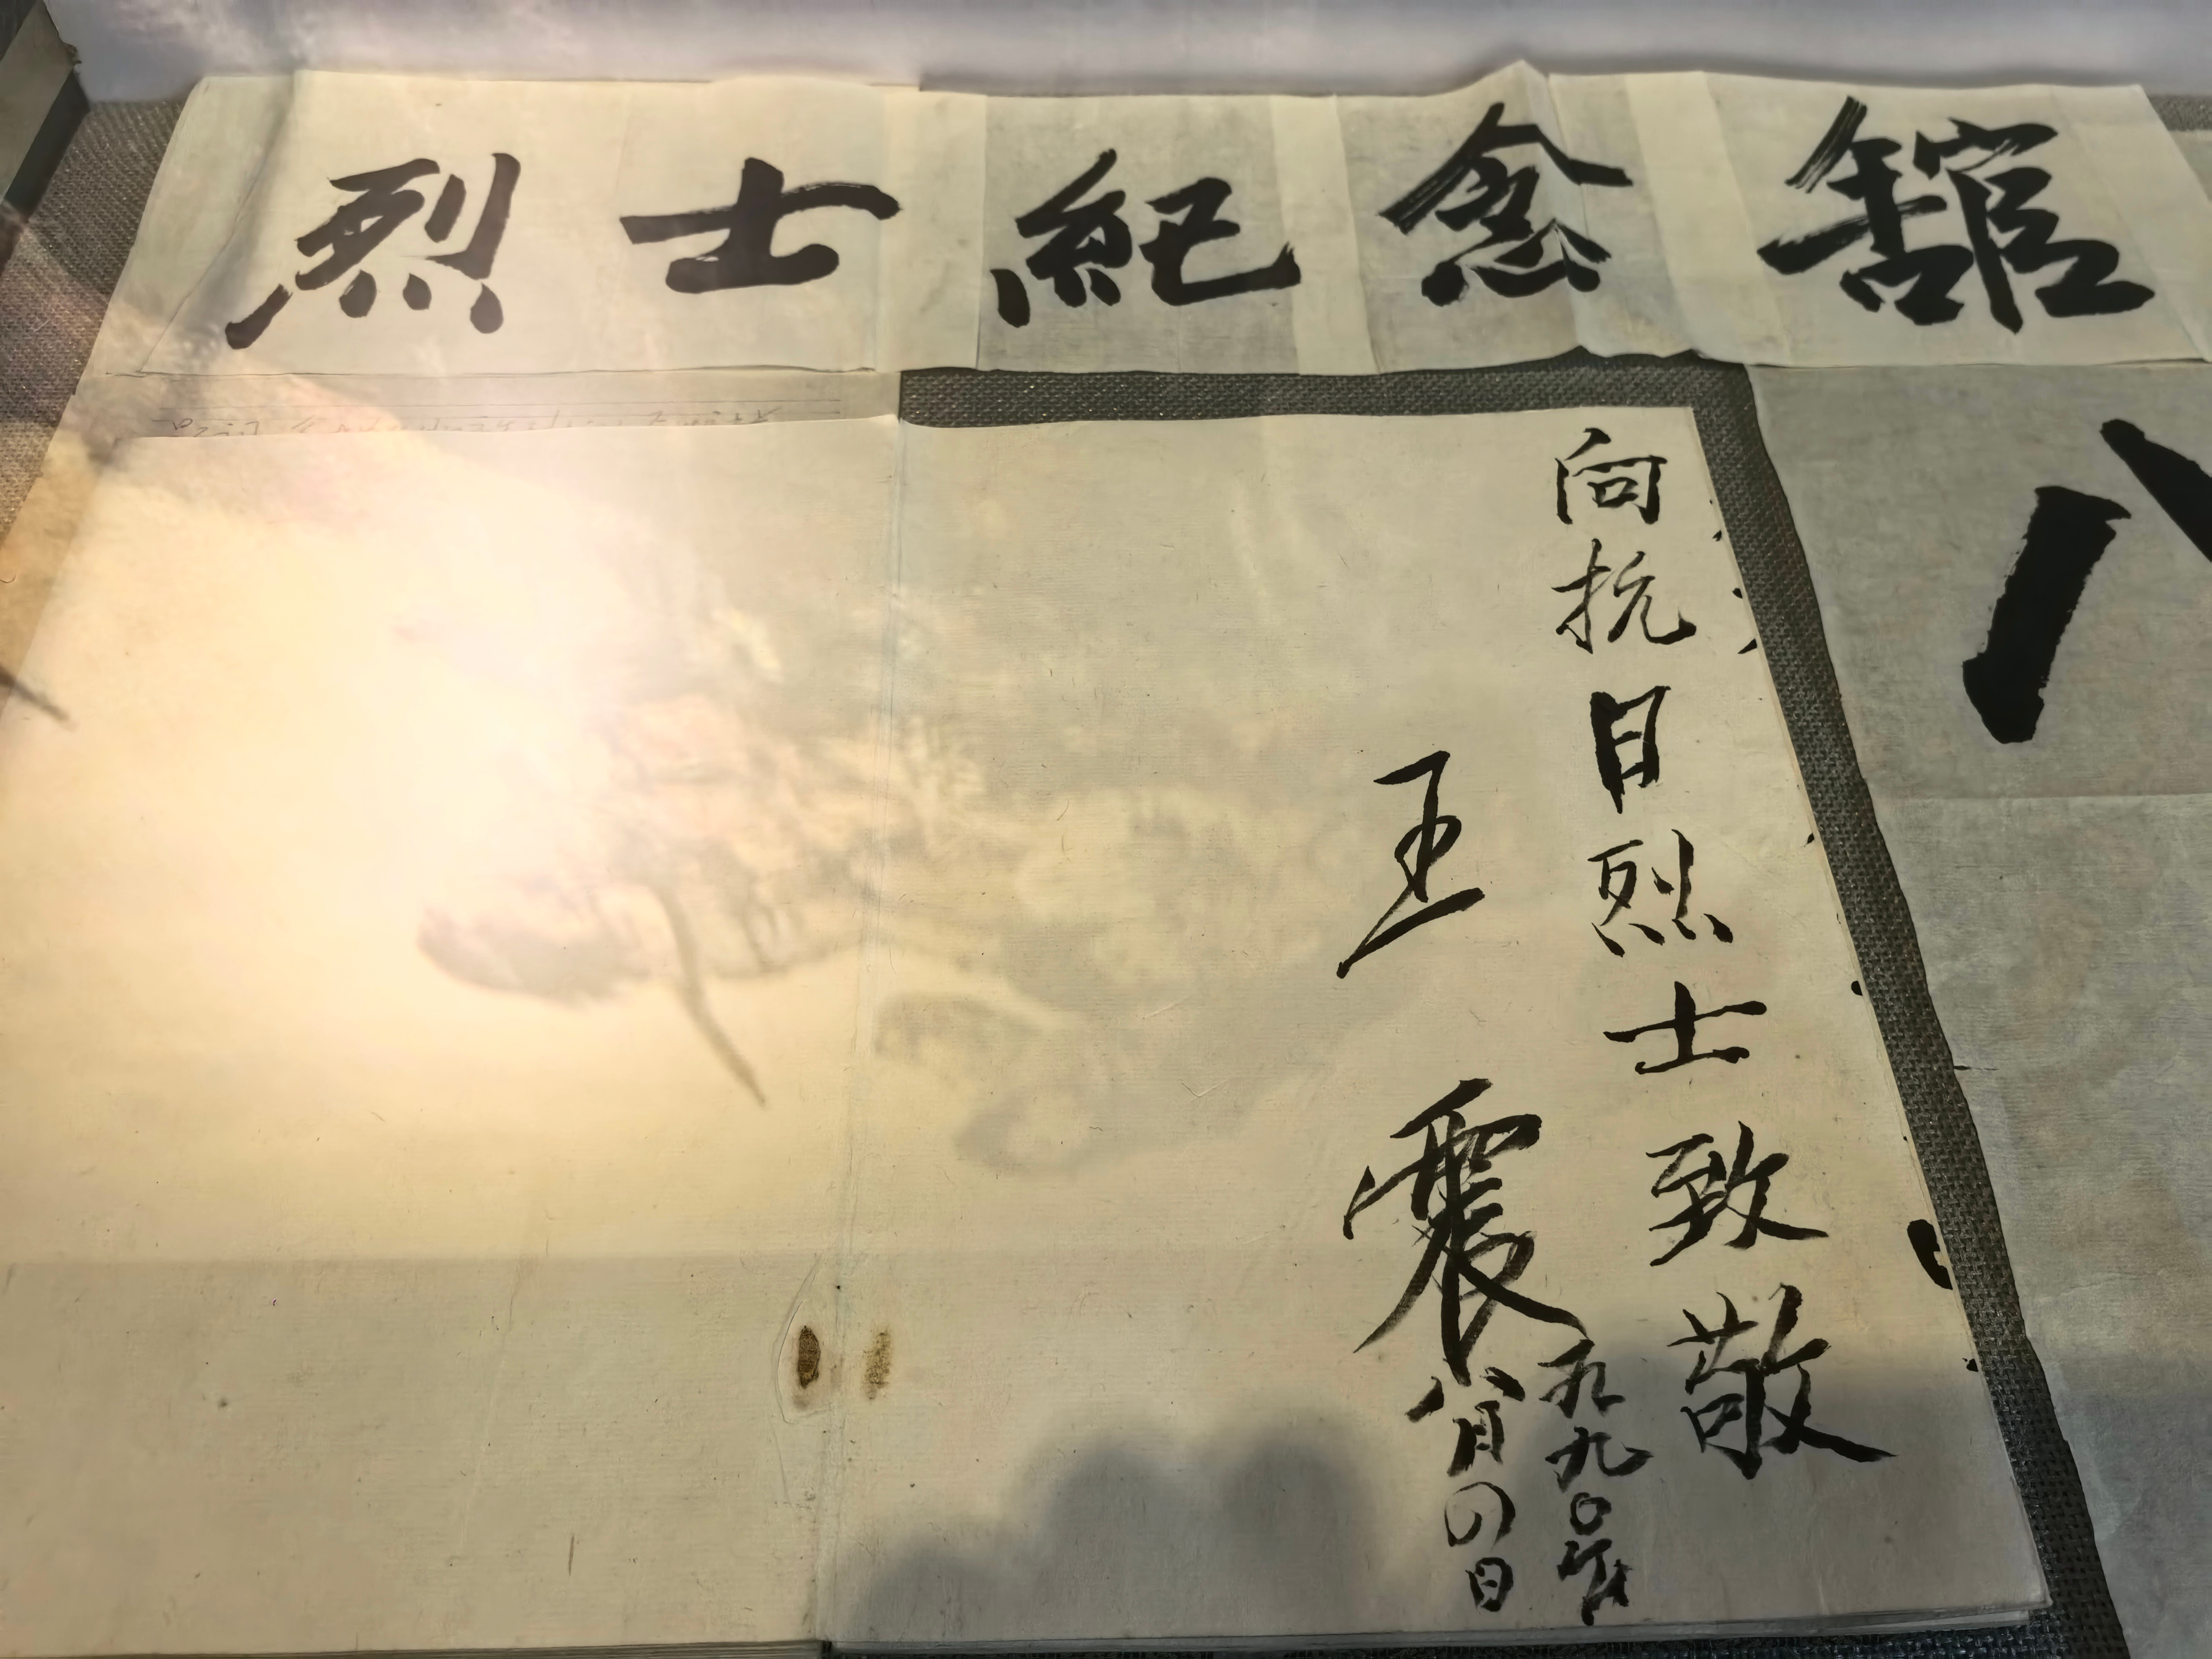 烈士紀念舘
向抗日烈士致敬
王震
一九九〇年
八月四日
八